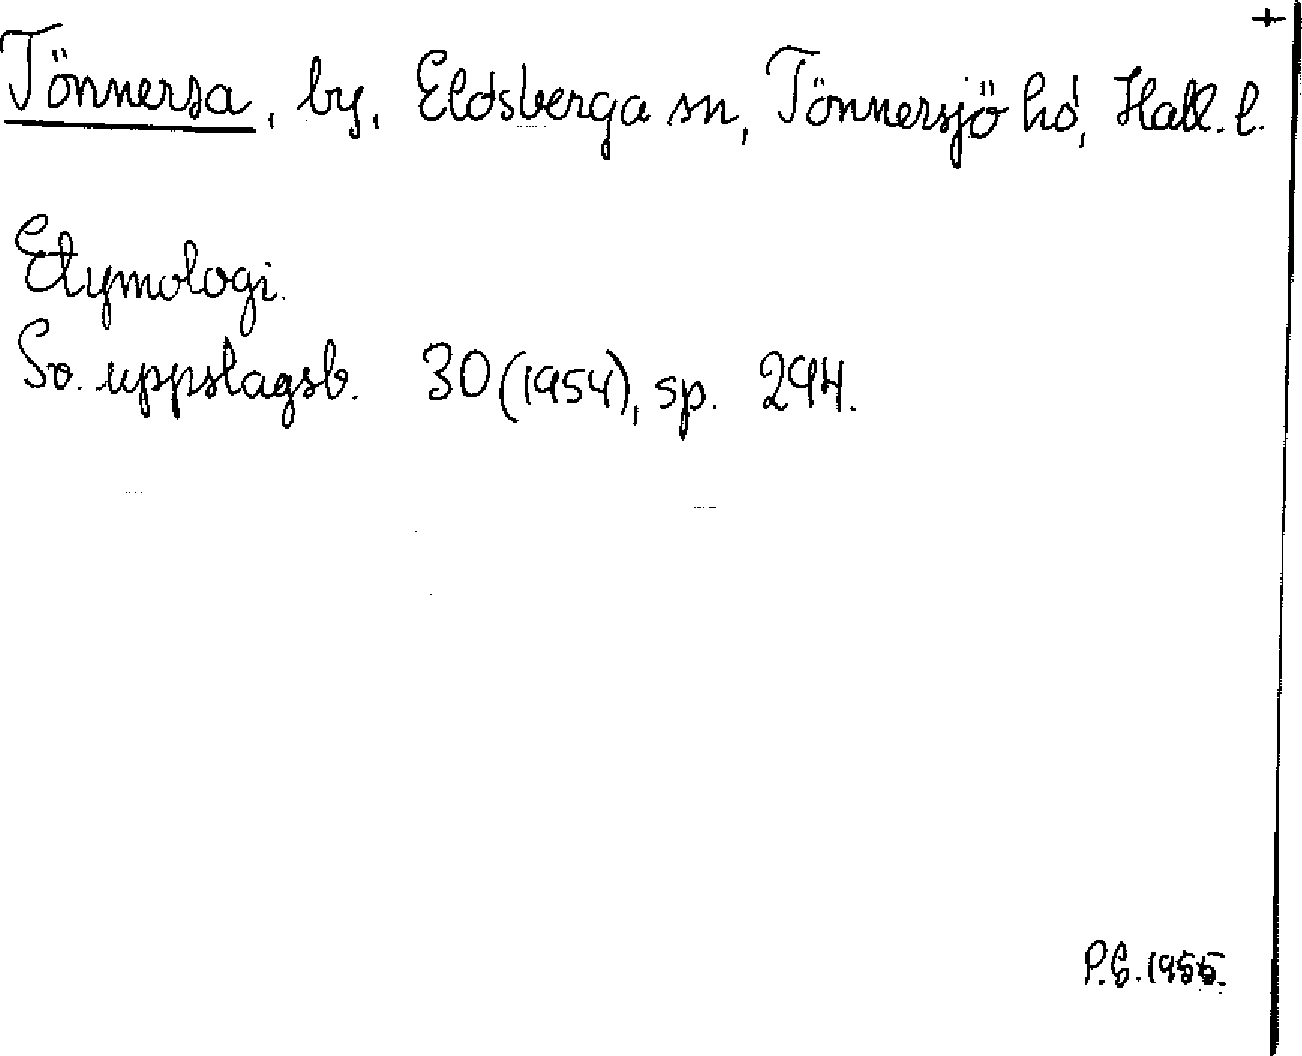 +
Tönnersa, by, Eldsberga sn, Tönnersjö hd, Hall. l.
Etymologi.
Sv. uppslagsb. 30 (1954), sp. 294.
P.G. 1955.